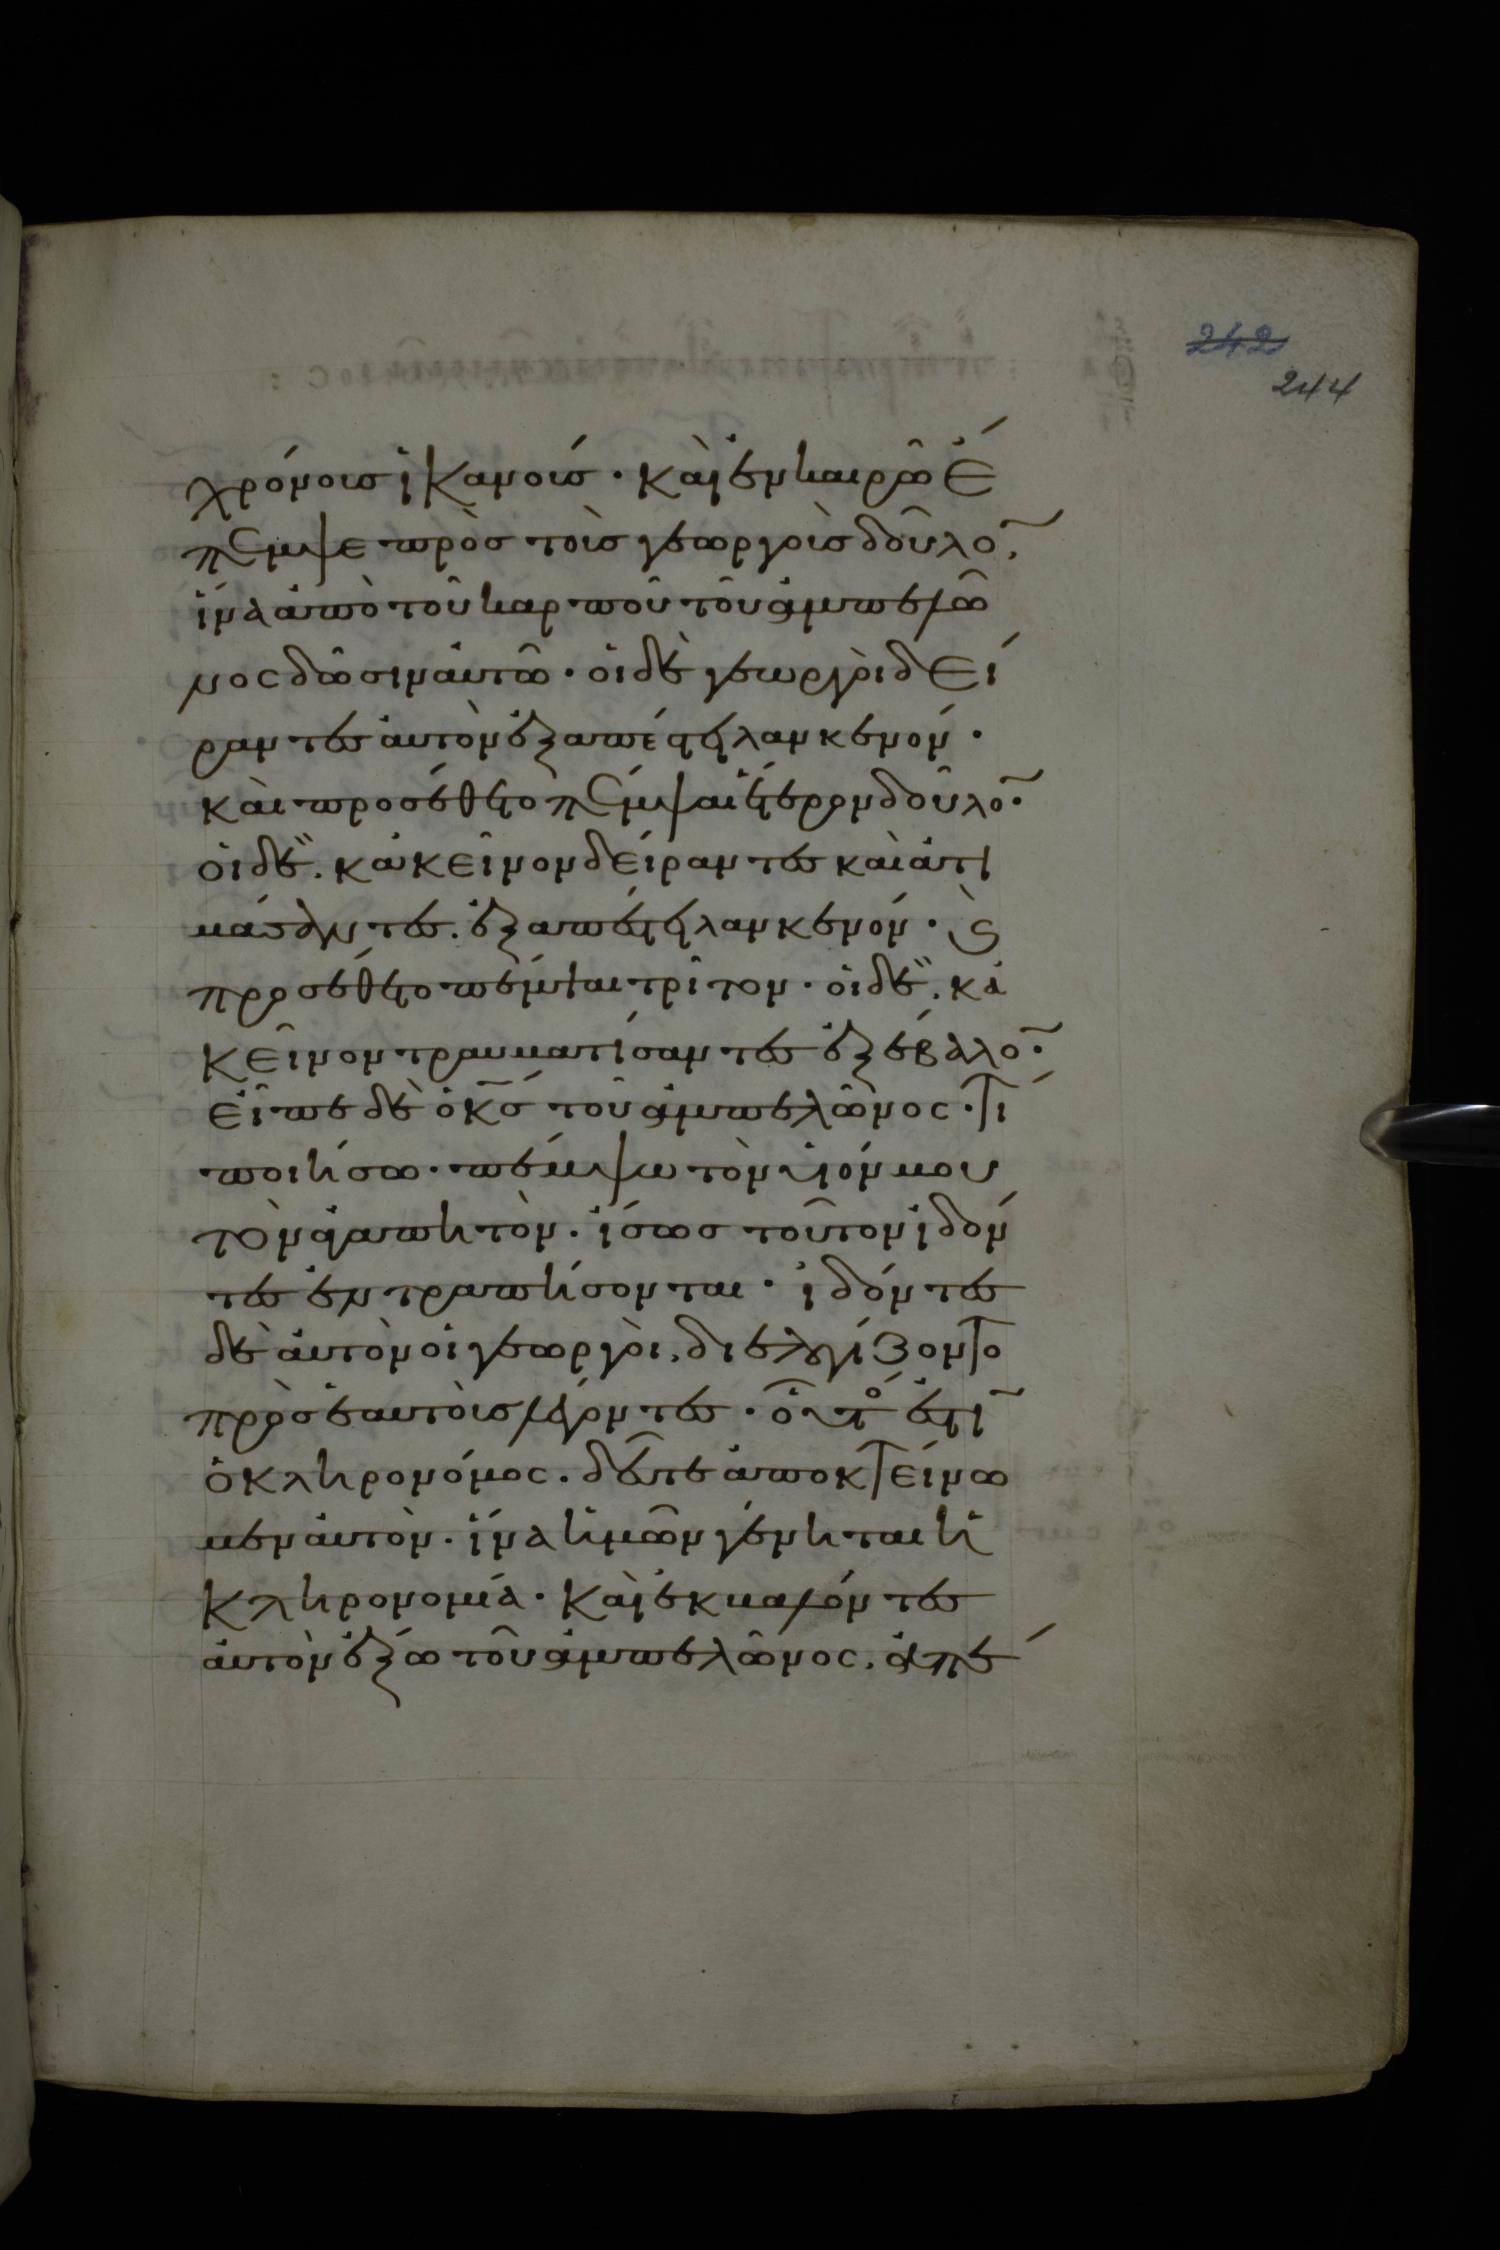 242
244
χρόνοισ ἱκανοίσ · καὶ ἐν καιρῶ ἔ
πεμψε πρὸσ τοὺσ γεωργοὺσ δοῦλο̃,
ἵνα ἀπὸ τοῦ καρποῦ τοῦ ἀμπελῶ
νος δῶσιν αὐτῶ · οἱ δὲ γεωργοὶ δεί
ραντεσ αὐτὸν ἐξαπέστειλαν κενόν ·
καὶ προσέθετο πέμψαι ἕτερον δοῦλο̃ ·
οἱ δὲ. κἀκεῖνον δείραντεσ καὶ ἀτι
μάσαντεσ. ἐξαπέστειλαν κενόν · ϗ
προσέθετο πέμψαι τρίτον · οἱ δὲ. κἀ
κεῖνον τραυματίσαντεσ ἐξέβαλο̃ ·
εἶπε δὲ ὁ κ̅σ̅ τοῦ ἀμπελῶνος · τί
ποιήσω · πέμψω τὸν υἱόν μου
τὸν ἀγαπητὸν · ἴσωσ τοῦτον ἰδόν
τεσ ἐντραπήσονται · ἰδόντεσ
δὲ αὐτὸν οἱ γεωργοὶ, διελογίζοντο
πρὸσ ἑαυτοὺσ λέγοντεσ · οὗτοσ ἐστὶ̃
ὁ κληρονόμος · δεῦτε ἀποκτείνω
μεν αὐτὸν · ἵνα ἡμῶν γένηται ἡ
κληρονομία · καὶ ἐκβαλόντεσ
αὐτὸν ἔξω τοῦ ἀμπελῶνος, ἀπέ